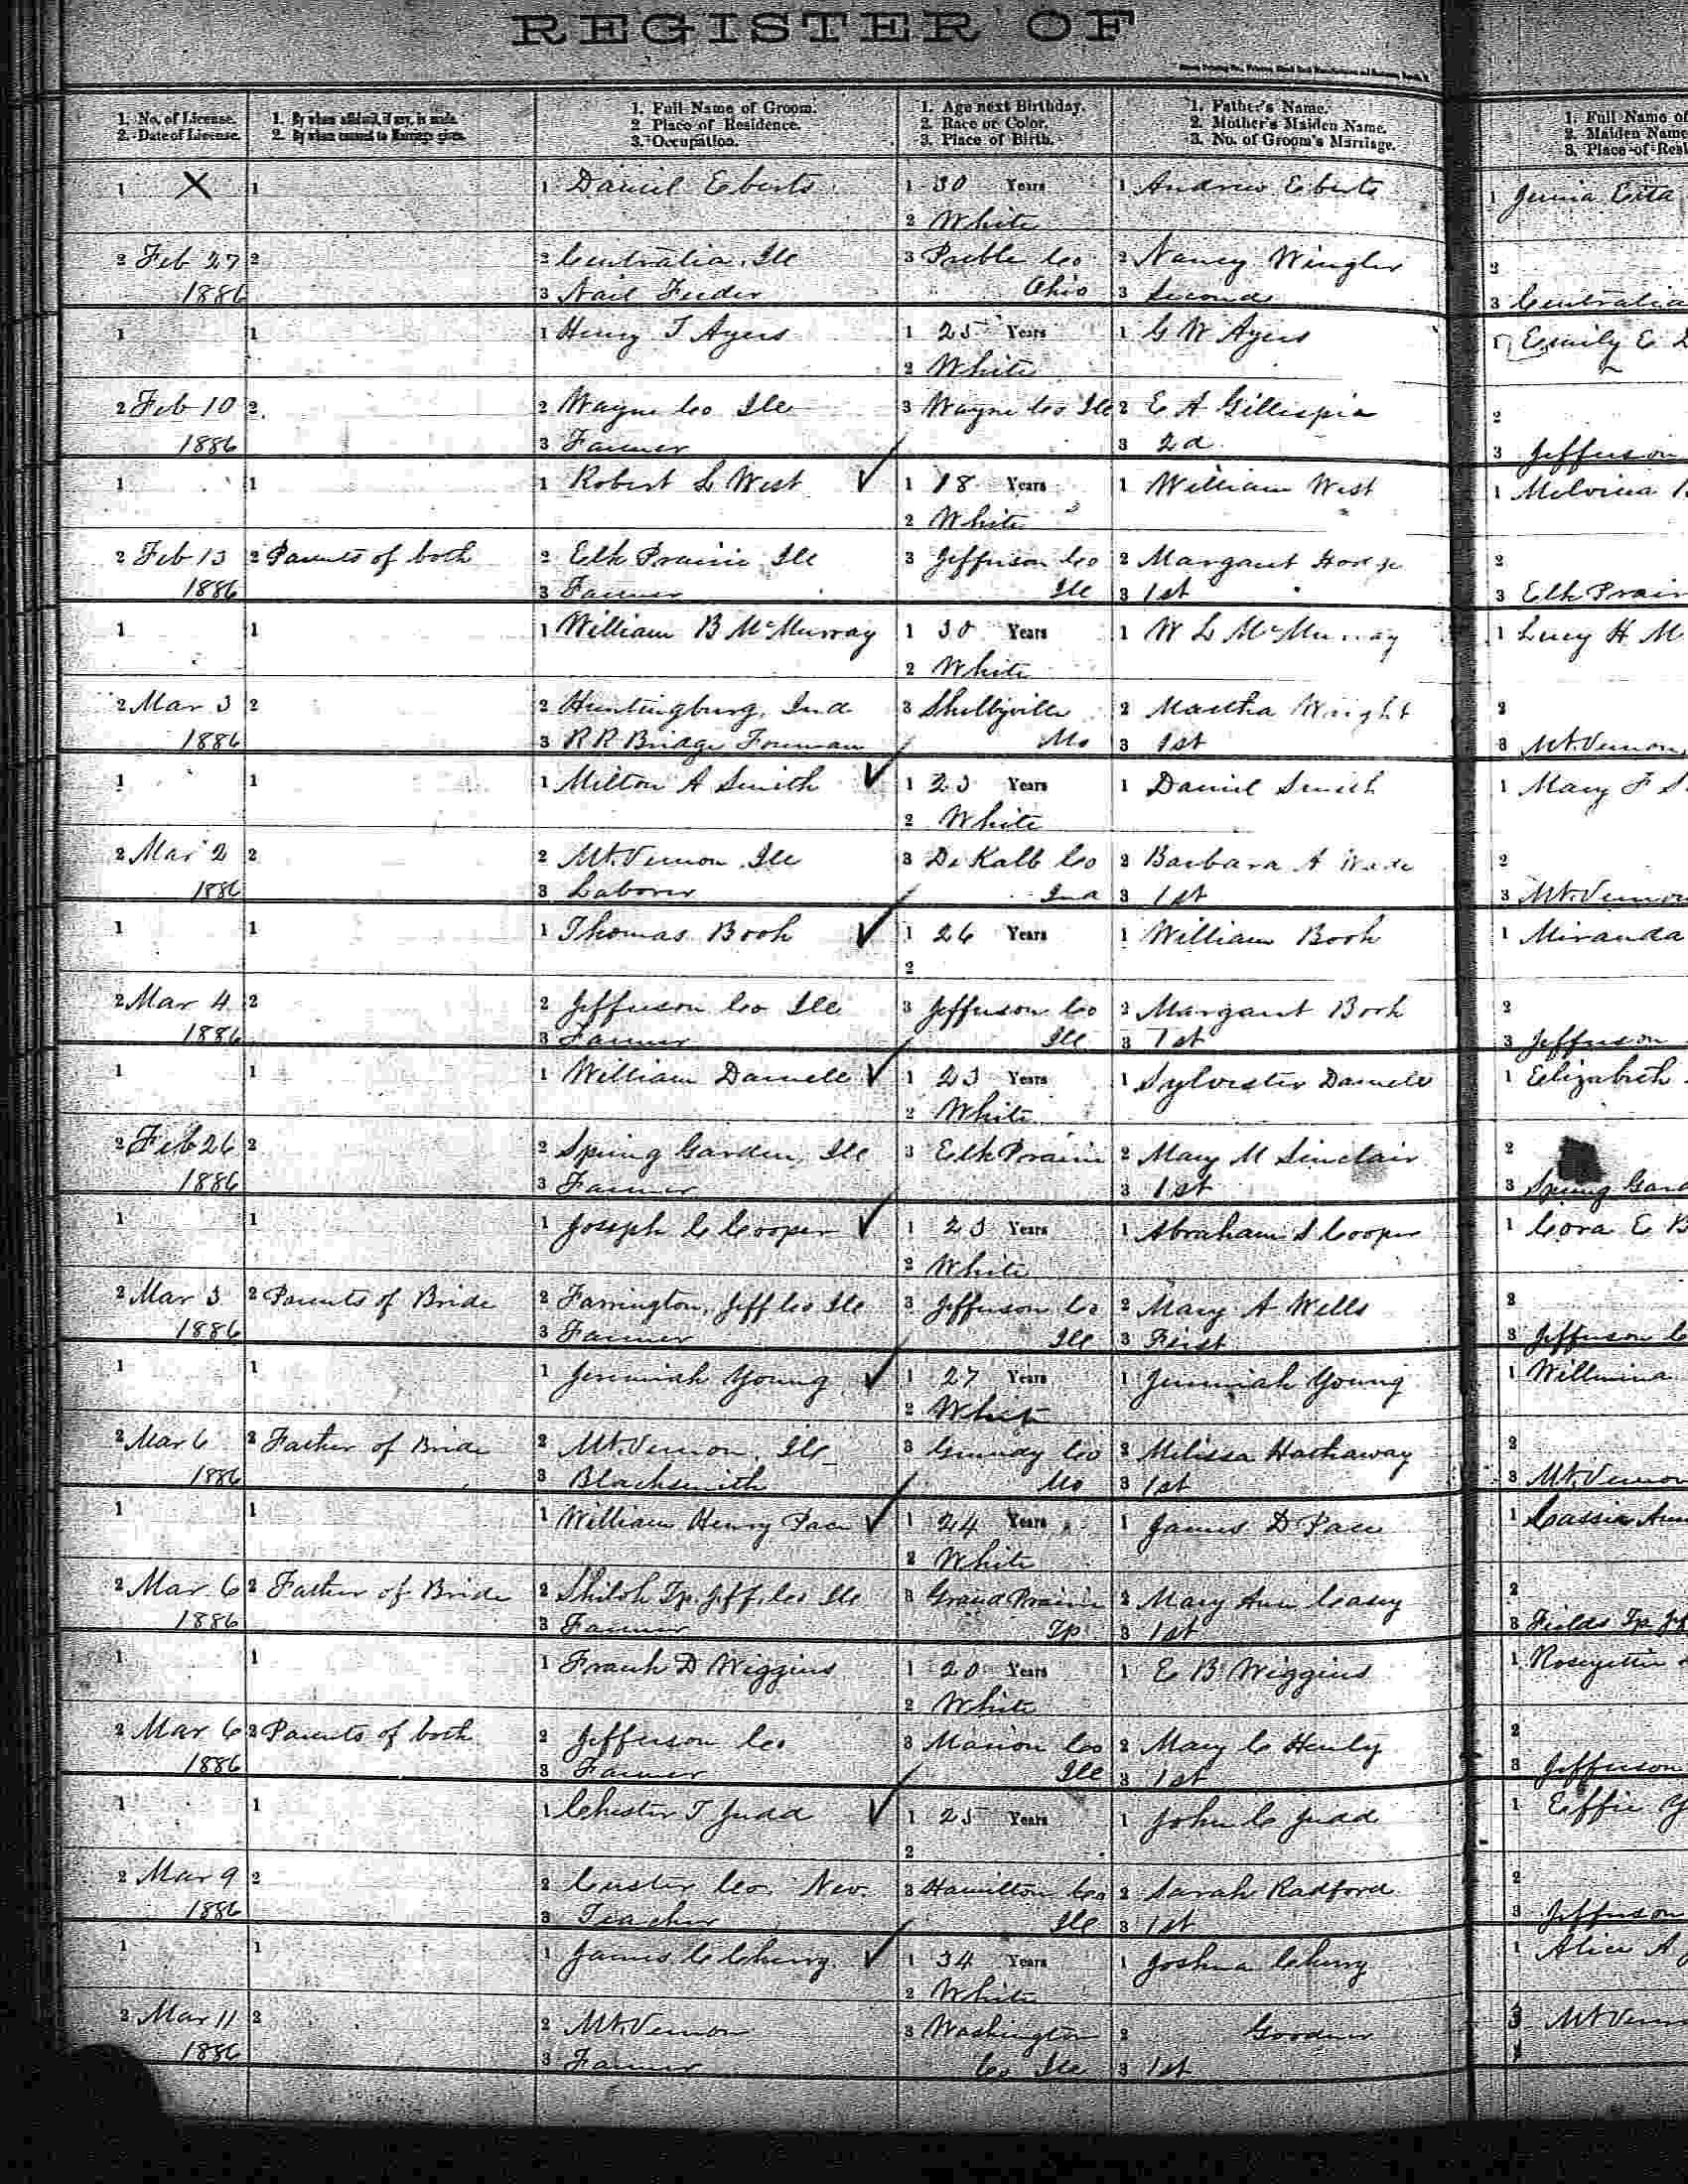 REGISTER OF
1. No. of License. 1. By whom affidavit, if any, is made. 1. Full Name of Groom. 1. Age next Birthday. 1. Father's Name. 1. Full Name of
2. Date of License. 2. By whom consent to Marriage given. 2 Place of Residence. 2. Race or Color. 2. Mother's Maiden Name. 2. Maiden Name
3. Occupation. 3. Place of Birth. 3. No. of Groom's Marriage. 3. Place of Resi
1 X 1 1 Daniel Eberts 1 30 Years 1 Andrew Eberts 1
2 White
2 Feb 27 2 2 Centralia, Ill 3 Preble Co 2 Nancy Wingler 2
1886 3 Nail Feeder Ohio 3 Second 3 Centralia
1 1 1 Henry T Ayers 1 25 Years 1 G W Ayers 1 Emily E
2 White
2 Feb 10 2 2 Wayne Co Ill 3 Wayne Co Ill 2 E A Gillispie 2
1886 3 Farmer 3 2d 3 Jefferson
1 1 1 Robert L West ✓ 1 18 Years 1 William West 1 Melvina
2 White
2 Feb 13 2 Parents of both 2 Elk Prairie Ill 3 Jefferson Co 2 Margaret 2
1886 3 Farmer Ill 3 1st 3 Elk Prair
1 1 1 William B McMurray 1 30 Years 1 W L McMurray 1 Lucy H M
2 White
2 Mar 3 2 2 Huntingburg, Ind 3 Shelbyville 2 Martha Wright 2
1886 3 R R Bridge Foreman Mo 3 1st 3 Mt. Vernon
1 1 1 Milton A Smith ✓ 1 23 Years 1 Daniel Smith 1 Mary F S
2 White
2 Mar 2 2 2 Mt. Vernon, Ill 3 De Kalb Co 2 Barbara A Wade 2
1886 3 Laborer Ind 3 1st 3 Mt. Vernon
1 1 1 Thomas Book ✓ 1 26 Years 1 William Book 1 Miranda
2
2 Mar 4 2 2 Jefferson Co Ill 3 Jefferson Co 2 Margaret Book 2
1886 3 Farmer Ill 3 1st 3 Jefferson
1 1 1 William Darnell ✓ 1 23 Years 1 Sylvester Darnell 1 Elizabeth
2 White
2 Feb 26 2 2 Spring Garden, Ill 3 Elk Prairie 2 Mary M Sinclair 2
1886 3 Farmer 3 1st 3 Spring Gard
1 1 1 Joseph C Cooper ✓ 1 23 Years 1 Abraham S Cooper 1 Cora E B
2 White
2 Mar 3 2 Parents of Bride 2 Farrington, Jeff Co Ill 3 Jefferson Co 2 Mary A Wells 2
1886 3 Farmer Ill 3 First 3 Jefferson C
1 1 1 Jeremiah Young ✓ 1 27 Years 1 Jeremiah Young 1 Willmina
2 White
2 Mar 6 2 Father of Bride 2 Mt. Vernon, Ill 3 Grundy Co 2 Melissa Hathaway 2
1886 3 Blacksmith Mo 3 1st 3 Mt. Vernon
1 1 1 William Henry Pace ✓ 1 24 Years 1 James D Pace 1 Cassie Ann
2 White
2 Mar 6 2 Father of Bride 2 Shiloh Tp. Jeff. Co Ill 3 Grand Prairie 2 Mary Ann Casey 2
1886 3 Farmer Tp 3 1st 3 Fields Tp. Jef
1 1 1 Frank D Wiggins 1 20 Years 1 E B Wiggins 1
2 White
2 Mar 6 2 Parents of both 2 Jefferson Co 3 Marion Co 2 Mary C Henly 2
1886 3 Farmer Ill 3 1st 3 Jefferson
1 1 1 Chester T Judd ✓ 1 25 Years 1 John C Judd 1 Effie Y
2
2 Mar 9 2 2 Custer Co. Nev. 3 Hamilton Co 2 Sarah Radford 2
1886 3 Teacher Ill 3 1st 3 Jefferson
1 1 1 James C Cherry ✓ 1 34 Years 1 Joshua Cherry 1 Alice A
2 White
2 Mar 11 2 2 Mt. Vernon 3 Washington 2 Goodner 3 Mt Vern
1886 3 Farmer Co Ill 3 1st